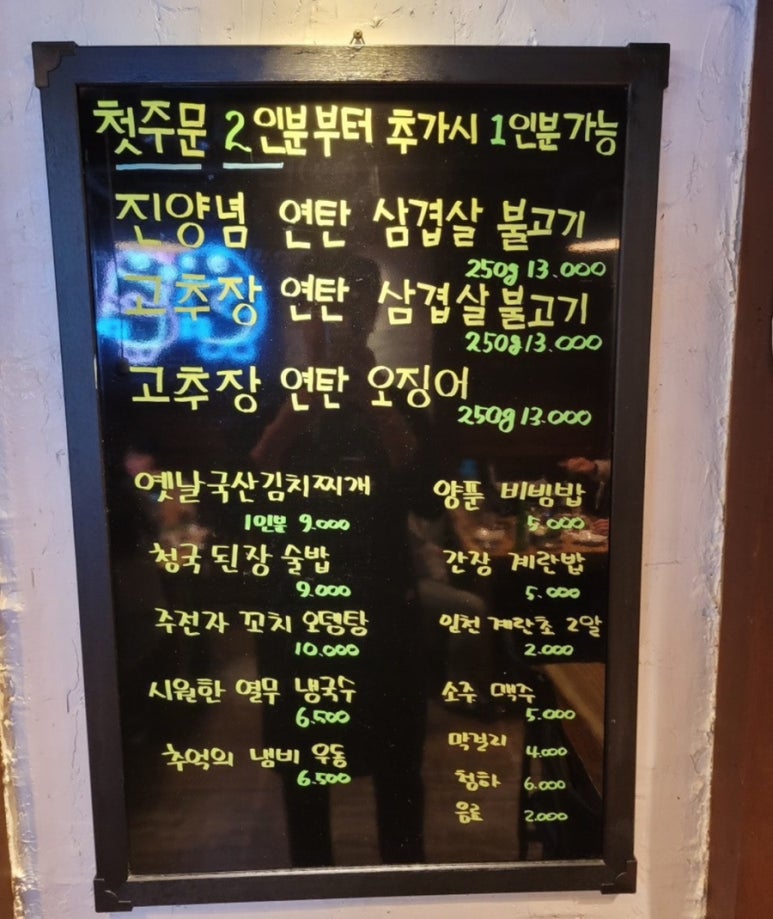 첫주문 2인분부터 추가시 1인분가능
진양념 연탄 삼겹살 불고기
250g 13.000
고추장 연탄 삼겹살 불고기
250g 13.000
고추장 연탄 오징어
250g 13.000
옛날국산김치찌개
1인분 9.000
청국된장 술밥
9.000
주전자 꼬치 오뎅탕
10.000
시원한 열무 냉국수
6.500
추억의 냄비 우동
6.500
양푼 비빔밥
5.000
간장 계란밥
5.000
인천 계란초 2알
2.000
소주 맥주
5.000
막걸리 4.000
청하 6.000
음료 2.000